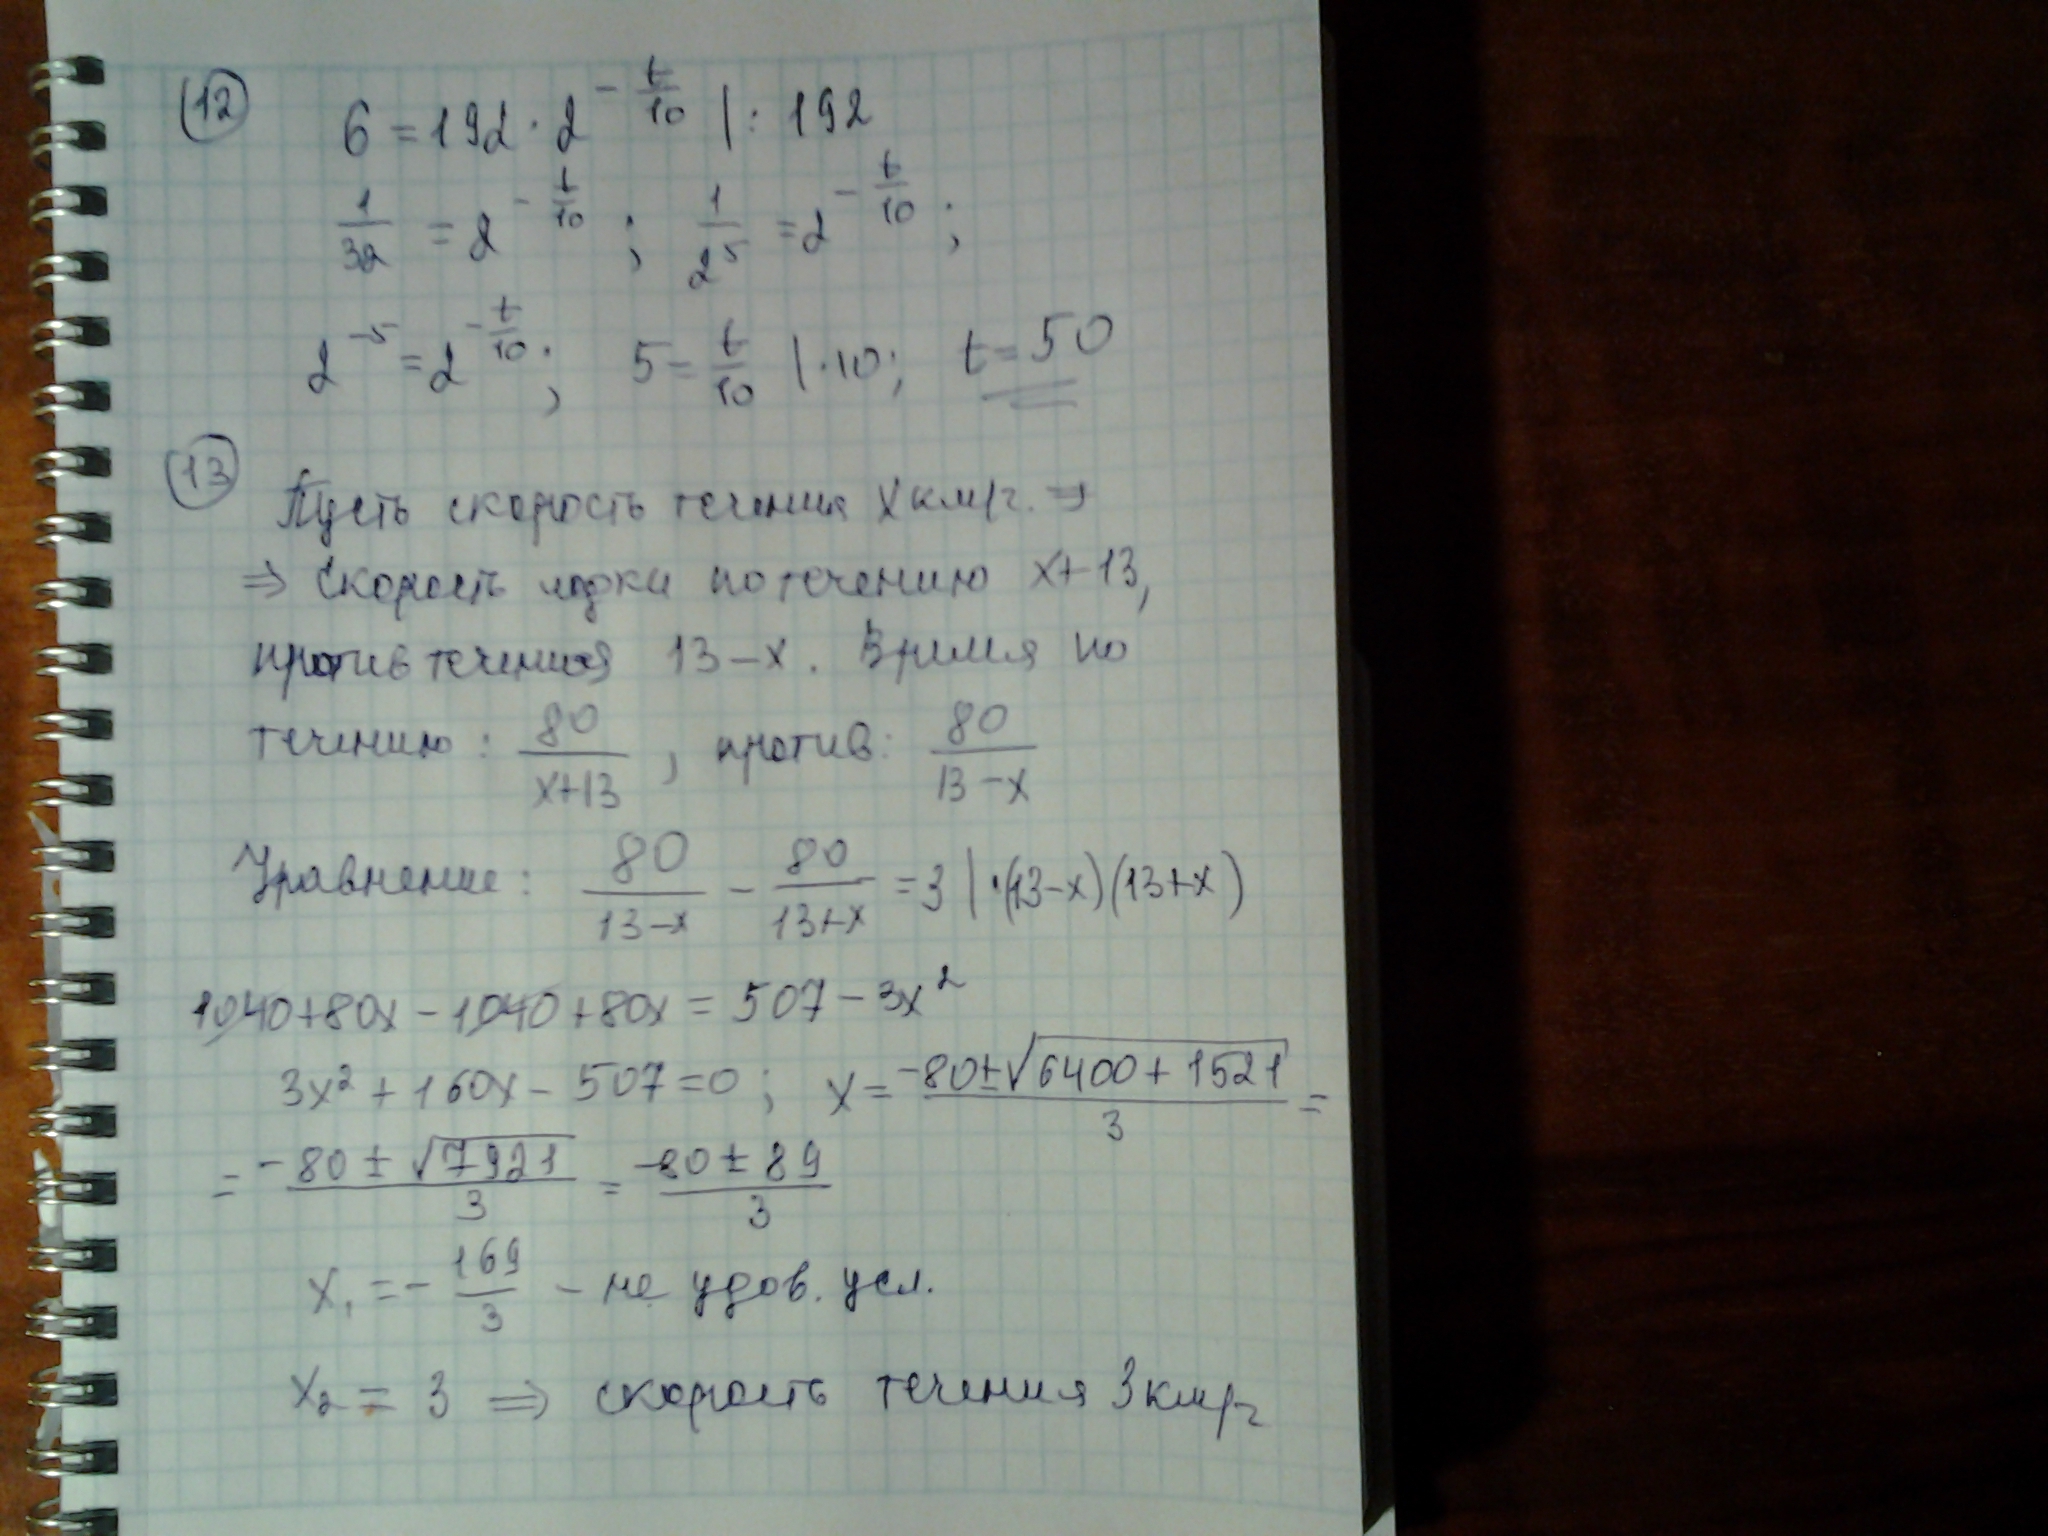 12 6 = 192 · 2^(-t/10) | : 192
1/32 = 2^(-t/10) ; 1/2^5 = 2^(-t/10) ;
2^(-5) = 2^(-t/10) ; 5 = t/10 | · 10 ; t = 50
13 Пусть скорость течения x км/ч. ⇒
⇒ скорость лодки по течению x+13,
против течения 13-x. Время по
течению : 80/(x+13) , против: 80/(13-x)
Уравнение : 80/(13-x) - 80/(13+x) = 3 | · (13-x)(13+x)
1040+80x - 1040 + 80x = 507 - 3x²
3x² + 160x - 507 = 0 ; x = (-80 ± √(6400 + 1521))/3 =
= (-80 ± √7921)/3 = (-80 ± 89)/3
x₁ = - 169/3 - не удов. усл.
x₂ = 3 ⇒ скорость течения 3 км/ч